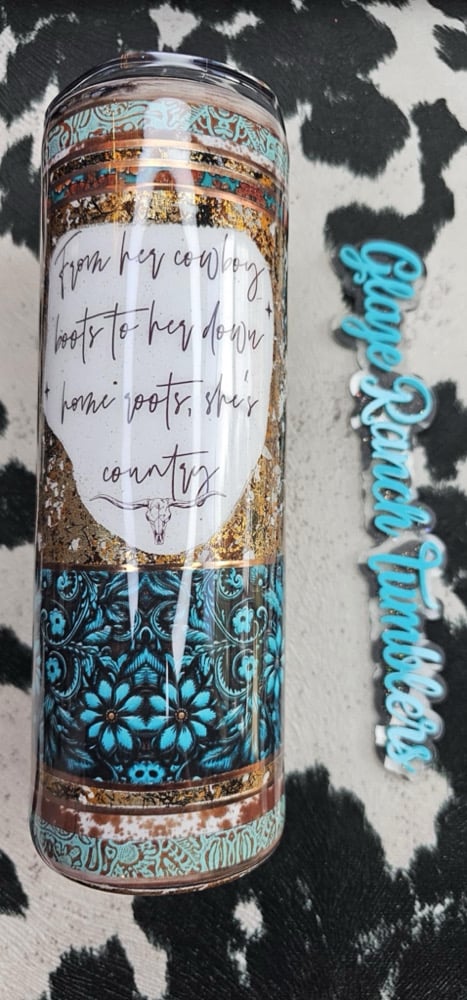 From her cowboy
boots to her down
home roots, she's
country
Glaze Ranch Tumblers